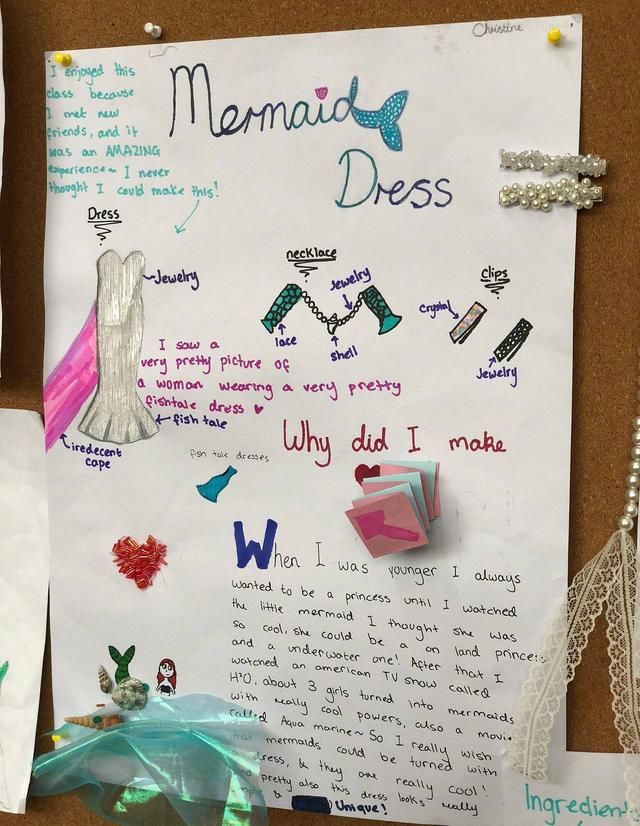 Christine
I enjoyed this
class because
I met new
friends, and it
was an AMAZING
experience~ I never
thought I could make this!
Mermaid
Dress
Dress
Jewelry
necklace
Jewelry
lace
shell
clips
crystal
Jewelry
I saw a
very pretty picture of
a woman wearing a very pretty
fishtale dress
fish tale
iredecent
cape
fish tale dresses
Why did I make
When I was younger I always
wanted to be a princess until I watched
the little mermaid I thought she was
so cool, she could be a on land princess
and a underwater one! After that I
watched an american TV show called
H²O, about 3 girls turned into mermaids
with really cool powers, also a movie
called Aqua marine~ So I really wish
that mermaids could be turned with
a dress, & they are really cool!
and pretty also this dress looks really
&
Unique!
Ingredien